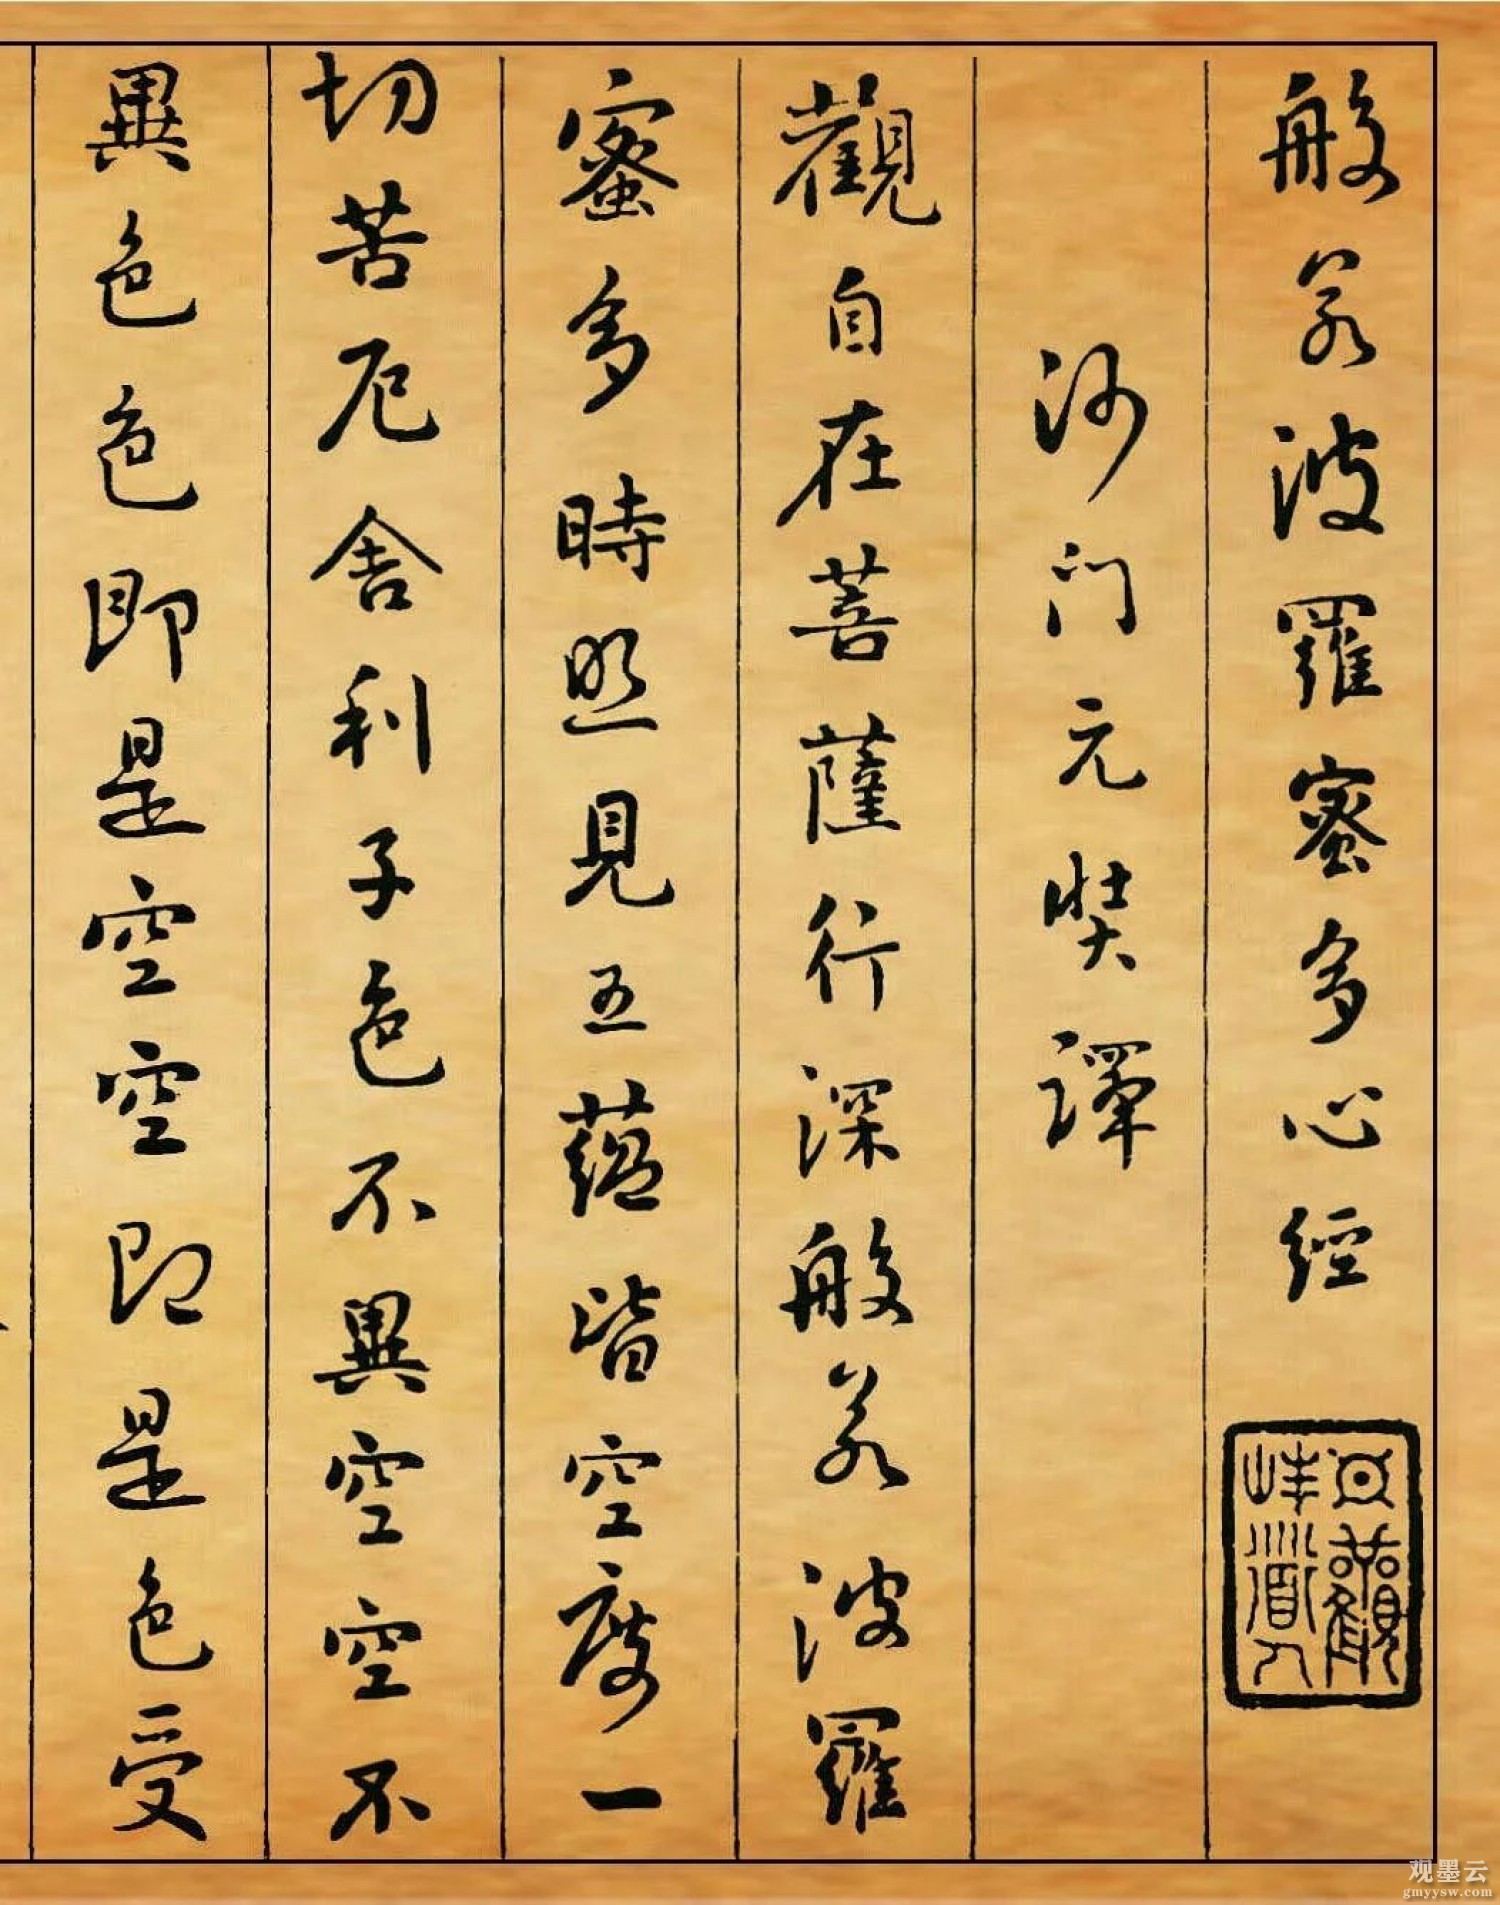 般若波羅蜜多心經
沙门元奘譯
觀自在菩薩行深般若波羅
蜜多時照見五蘊皆空度一
切苦厄舍利子色不異空空不
異色色即是空空即是色受
观墨云
gmyysw.com